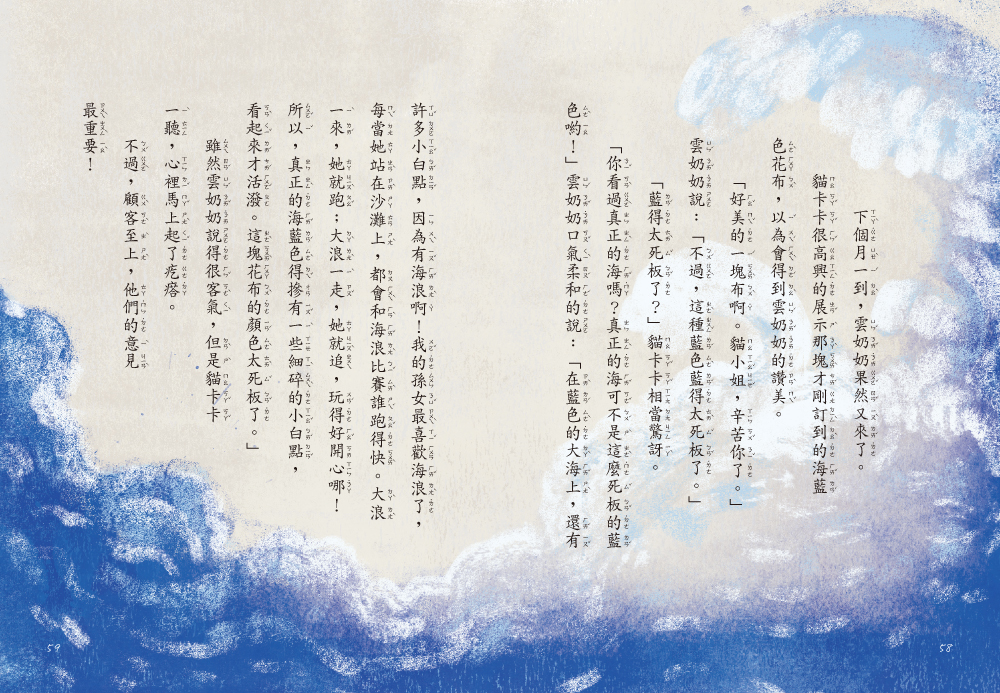 下個月一到，雲奶奶果然又來了。
貓卡卡很高興的展示那塊才剛訂到的海藍
色花布，以為會得到雲奶奶的讚美。
「好美的一塊布啊。貓小姐，辛苦你了。」
雲奶奶說：「不過，這種藍色藍得太死板了。」
「藍得太死板了？」貓卡卡相當驚訝。
「你看過真正的海嗎？真正的海可不是這麼死板的藍
色喲！」雲奶奶口氣柔和的說：「在藍色的大海上，還有
許多小白點，因為有海浪啊！我的孫女最喜歡海浪了，
每當她站在沙灘上，都會和海浪比賽誰跑得快。大浪
一來，她就跑；大浪一走，她就追，玩得好開心哪！
所以，真正的海藍色得摻有一些細碎的小白點，
看起來才活潑。這塊花布的顏色太死板了。」
雖然雲奶奶說得很客氣，但是貓卡卡
一聽，心裡馬上起了疙瘩。
不過，顧客至上，他們的意見
最重要！
58
59